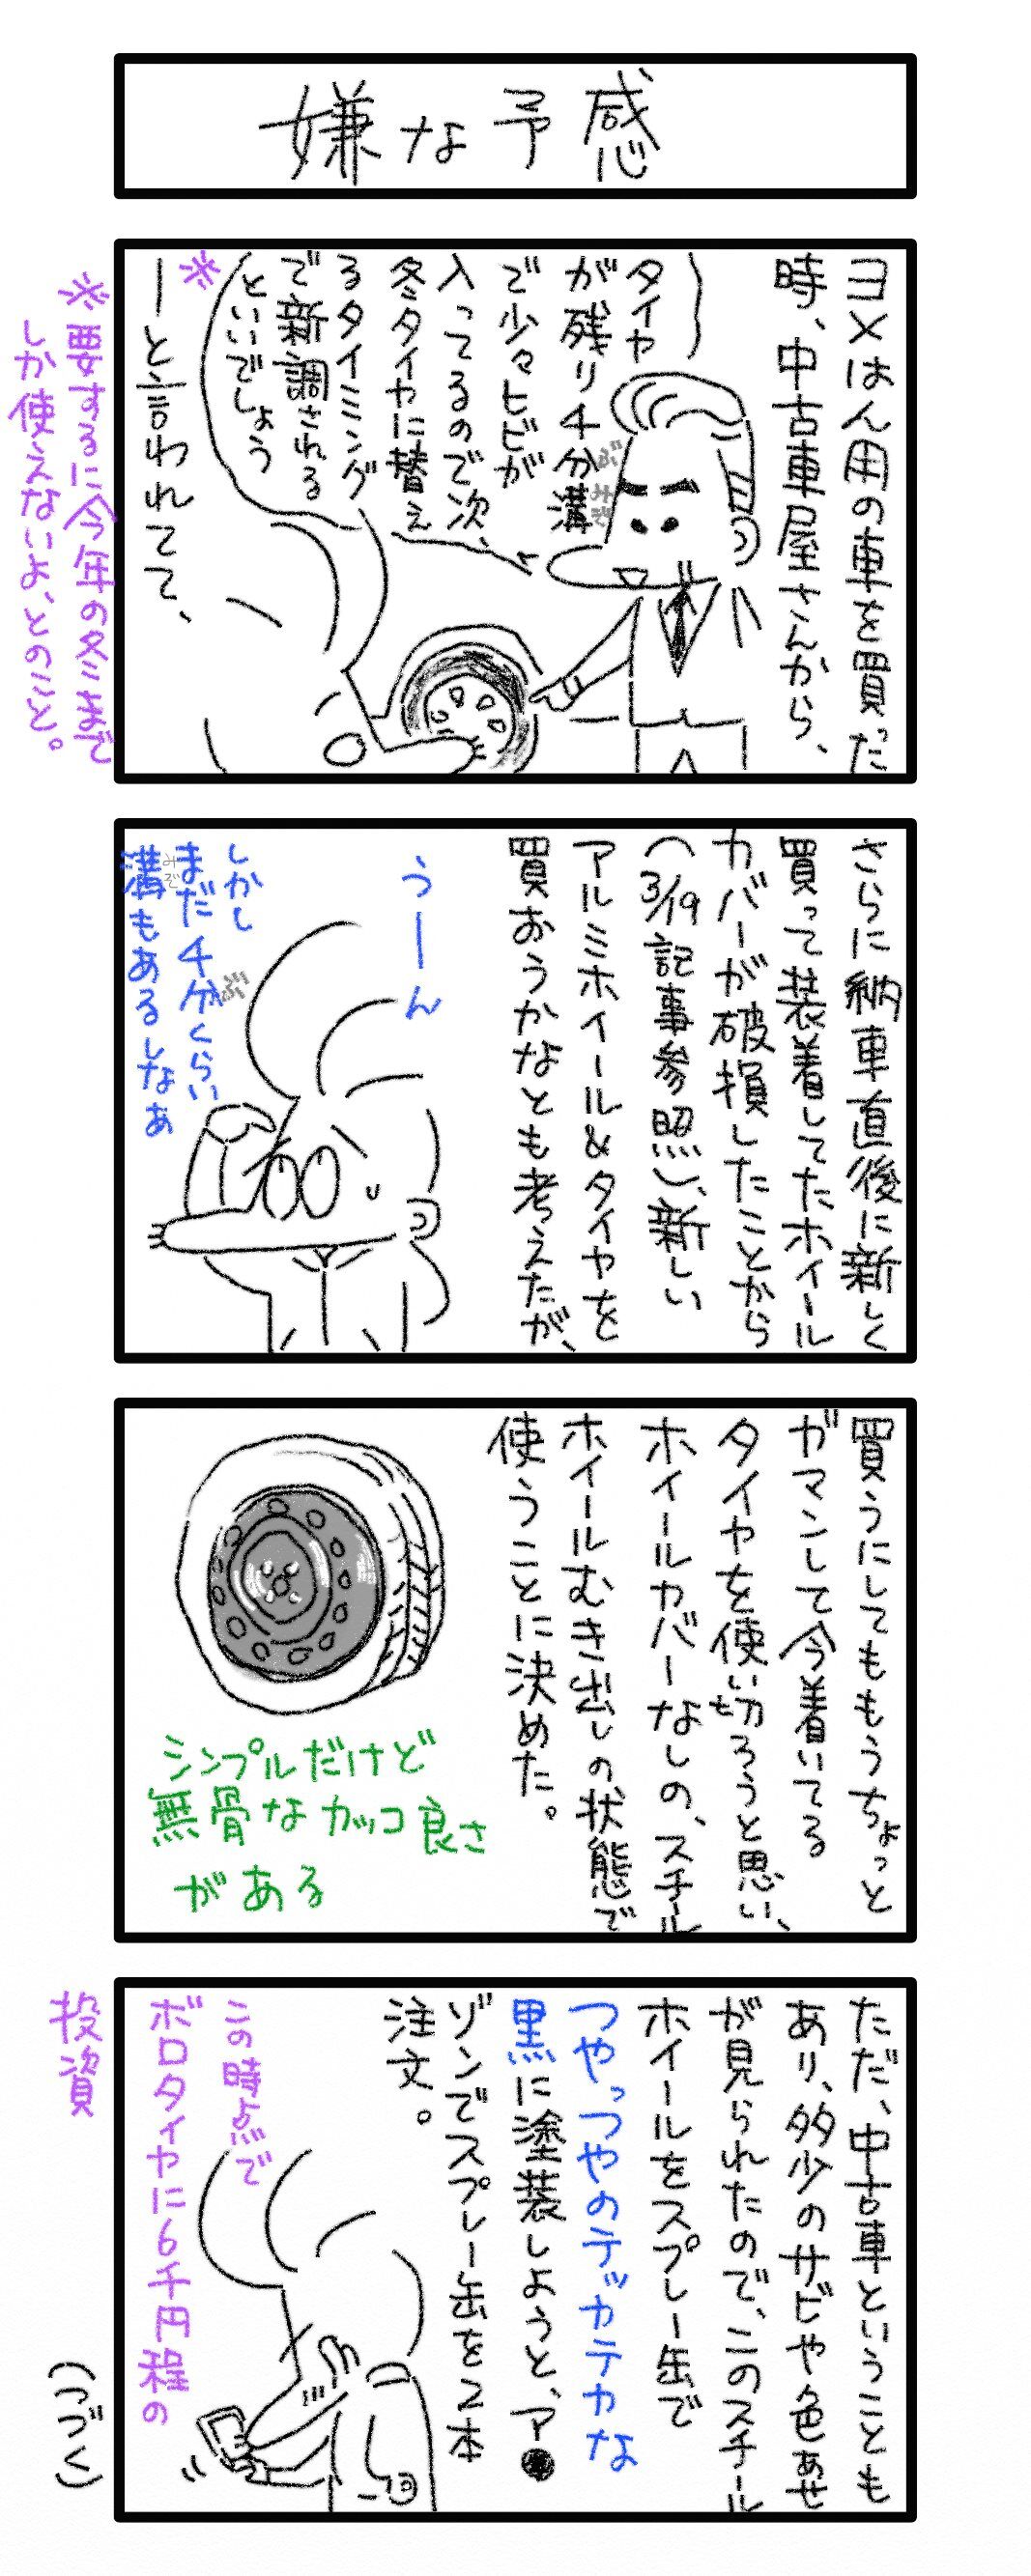 嫌な予感
ヨメはん用の車を買った
時、中古車屋さんから、
タイヤ
が残り千分溝
ぶ
みぞ
で少々ヒビが
入ってるので次、
冬タイヤに替え
るタイミング
で新調される
といいでしょう
※
ーと言われてて、
※要するに今年の冬まで
しか使えないよ、とのこと。
さらに納車直後に新しく
買って装着してたホイール
カバーが破損したことから
(3/19記事参照)、新しい
アルミホイール&タイヤを
買おうかなとも考えたが、
うーん
しかし
まだ千分くらい
ぶ
溝もあるしなぁ
みぞ
買うにしてももうちょっと
ガマンして今着いてる
タイヤを使い切ろうと思い、
ホイールカバーなしの、スチール
ホイールむき出しの状態で
使うことに決めた。
シンプルだけど
無骨なカッコ良さ
がある
ただ、中古車ということも
あり、多少のサビや色あせ
が見られたので、このスチール
ホイールをスプレー缶で
つやっつやのテッカテカな
黒に塗装しようと、ア●
ゾンでスプレー缶を2本
注文。
この時点で
ボロタイヤに6千円程の
投資
(つづく)